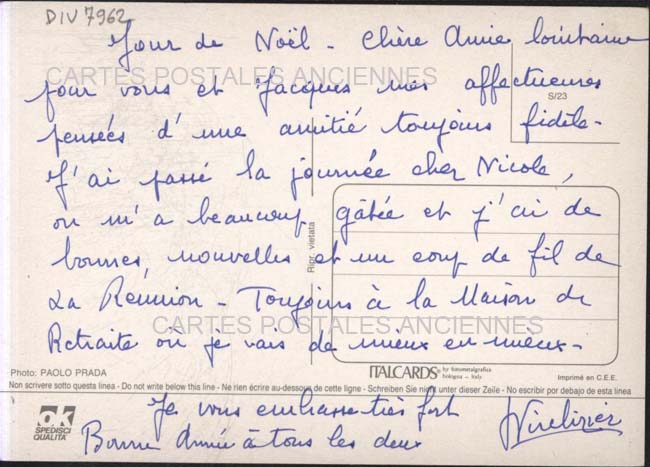 DIV 7962
Jour de Noël - Chère Amie lointaine
CARTES POSTALES ANCIENNES
pour vous et Jacques mes affectueuses
S/23
pensées d'une amitié toujours fidèle -
J'ai passé la journée chez Nicole,
on m'a beaucoup gâtée et j'ai de
bonnes nouvelles et un coup de fil de
Rigr. vietata
La Reunion - Toujours à la Maison de
CARTES POSTALES ANCIENNES
Retraite où je vais de mieux en mieux -
Photo: PAOLO PRADA
ITALCARDS by fotometalgrafica
bologna - Italy
Imprimé en C.E.E.
Non scrivere sotto questa linea - Do not write below this line - Ne rien écrire au-dessous de cette ligne - Schreiben Sie nicht unter dieser Zeile - No escribir por debajo de esta linea
Je vous embrasse très fort
ok
SPEDISCI
QUALITA'
Bonne Année à tous les deux